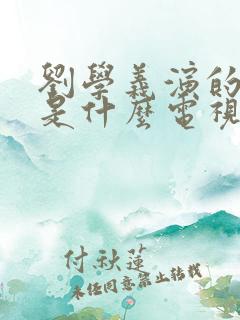 劉學義演的
是什麼電視
付秋蓮
未经同意禁止转载